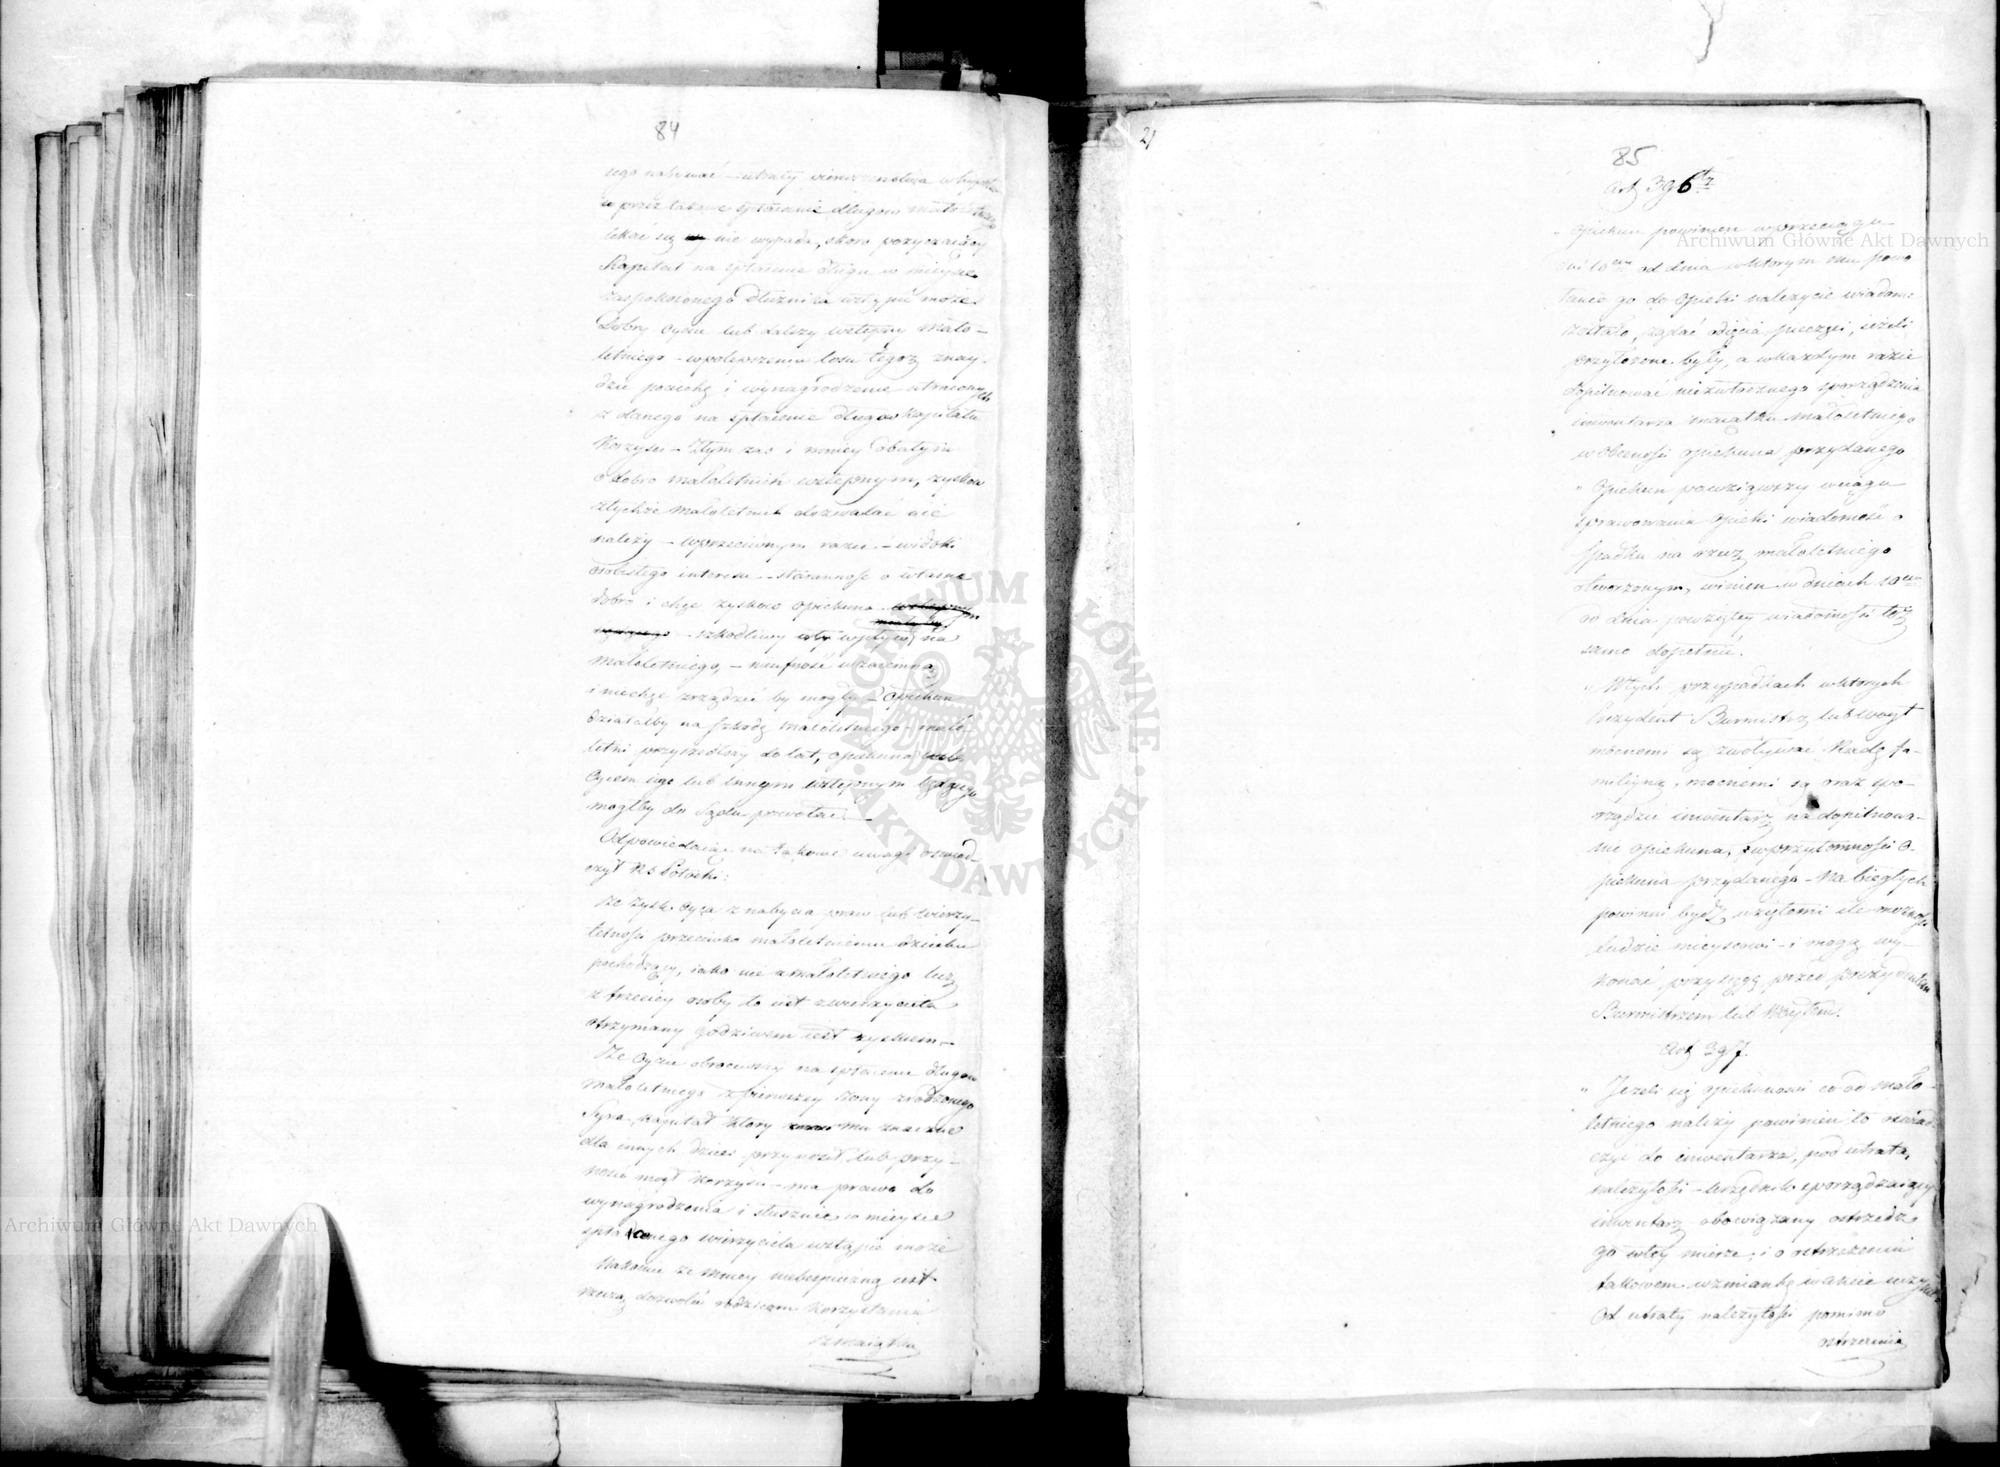 84
ego nabywać – utraty pierwszeństwa w hypote
w przez takowe spłacenie długow małoletniego
lękać się nie wypada, skoro pożyczaiący
Kapitał na spłacenie długu w mieysce
zaspokoionego dłużnika wstąpić może.
Dobry oyciec lub dalszy wstępny mało-
letniego – w polepszeniu losu tegoż znay-
dzie pociechę i wynagrodzenie utraconych
z danego na spłacenie długow kapitału
korzyści – Złym zaś i mniey dbałym
o dobro małoletnich wstępnym, zysków
z tychże małoletnich dozwalać nie
należy – w przeciwnym razie – widoki
osobistego interesu – staranność o własne
dobro i chęć zysków opiekuna
szkodliwy wpływ na
małoletniego, – nieufność wzaiemną
i niechęć zrządzić by mogły – Opiekun
działałby na szkodę małoletniego – mało-
letni przyszedłszy do lat, opiekuna
Oycem iego lub innym wstępnym będącego
mógłby do Sądu powołać. –
Odpowiadaiąc na takowe uwagi oświad-
czył RS Potocki:
że zysk oyca z nabycia praw lub wierzy-
telności przeciwko małoletniemu dziecku
pochodzący, iako nie z małoletniego lecz
z trzeciey osoby to iest z wierzyciela
otrzymany godziwem iest zyskiem. –
Że Oyciec obróciwszy na spłacenie długow
małoletniego z pierwszey żony zrodzonego
Syna, kapitał który mu znaczne
dla innych dzieci przynosił lub przy-
nosić mógł korzyści – ma prawo do
wynagrodzenia i słusznie w mieysce
spłaconego wierzyciela wstąpić może
Nakoniec że mniey niebezpieczną iest
rzeczą dozwolić rodzicom korzystania
z maiątku
21
85
Art 396ty
„ Opiekun powinien w przeciągu
dni 10ciu od dnia w którym mu powo
łanie go do opieki należycie wiadome
zostało, żądać odięcia pieczęci, ieżeli
przyłożone były, a w każdym razie
dopilnować niezwłocznego sporządzenia
inwentarza maiątku małoletniego
w obecności opiekuna przydanego
„ Opiekun powziąwszy w ciągu
sprawowania opieki wiadomość o
spadku na rzecz małoletniego
otworzonym, winien w dniach 10ciu
od dnia powziętey wiadomości toż
samo dopełnić.
„ W tych przypadkach w których
Prezydent Burmistrz, lub Woyt
mocnemi są zwoływać Radę fa-
miliyną, mocnemi są oraz spo-
rządzić inwentarz na dopilnowa-
nie opiekuna, w przytomności o-
piekuna przydanego – Na biegłych
powinni bydź użytemi ile możności
ludzie mieyscowi – i mogą wy-
konać przysięgę przed prezydentem
Burmistrzem lub Woytem.
Art 397.
„ Jeżeli się opiekunowi co od mało-
letniego należy powinien to oświad-
czyć do inwentarza, pod utratą
należytości – Urzędnik sporządzaiący
inwentarz obowiązany ostrzedz
go w tey mierze; i o ostrzeżeniu
takowem wzmiankę w akcie uczynić
Od utraty należytości pomimo
ostrzeżenia
Archiwum Główne Akt Dawnych
Archiwum Główne Akt Dawnych
ARCHIWUM GŁÓWNE AKT DAWNYCH